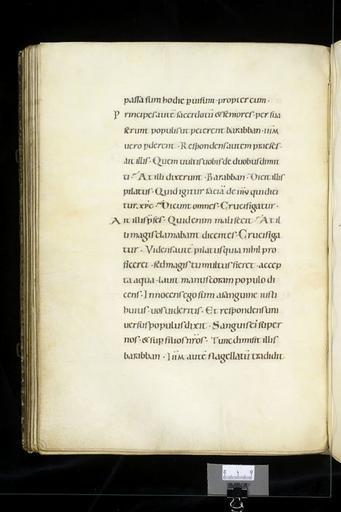 passa sum hodie p uisum · propter eum ·
Principes autē sacerdotū & seniores · per sua
serunt populis ut peterent barabban · ihm
uero pderent · Respondens autem preses ·
ait illis · Quem uultis uobis de duobus dimit
ti · At illi dixerunt · Barabban · Dicit illis
pilatus · Quid igitur faciā de ihu qui dici
tur · xpc · Dicunt omnes · Crucifigatur ·
Ait illis pses · Quid enim mali fecit · At il
li magis clamabant dicentes · Crucifiga
tur · Videns autē pilatus quia nihil pro
ficeret · sed magis tumultus fieret · accep
ta aqua · lauit manus coram populo di
cens · Innocens ego sum a sanguine iusti
huius · uos uideritis · Et respondens uni
uersus populus dixit · Sanguis ei super
nos · & sup filios nros · Tunc dimisit illis
barabban · ihm autē flagellatū tradidit